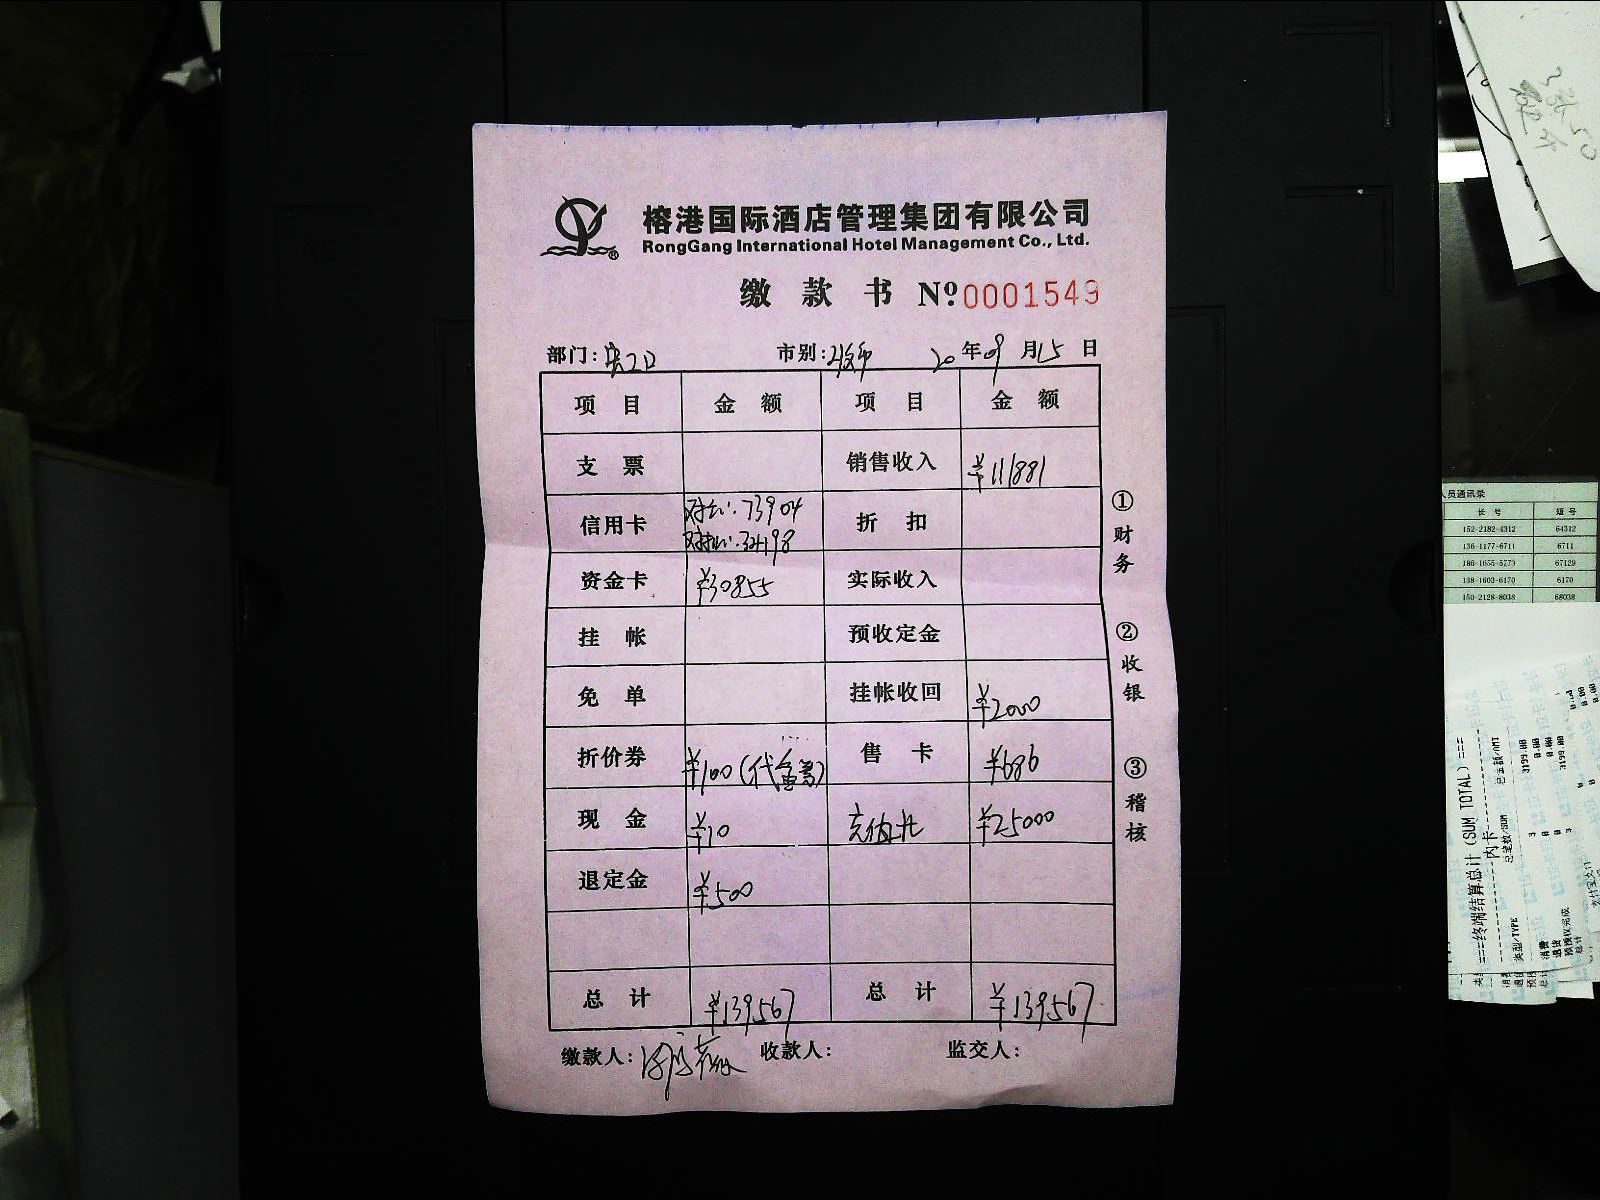 榕港国际酒店管理集团有限公司
RongGang International Hotel Management Co., Ltd.
缴 款 书 Nº 0001549
部门: 市别: 20 年 09 月 15 日
项 目 金 额 项 目 金 额
支 票 销售收入 ¥111881
信用卡 73904 折 扣
34198
资金卡 ¥30855 实际收入
挂 帐 预收定金
免 单 挂帐收回 ¥2000
折价券 ¥100(代金券) 售 卡 ¥686
现 金 ¥10 充值卡 ¥25000
退定金 ¥500
总 计 ¥139567 总 计 ¥139567
缴款人: 收款人: 监交人:
①财务 ②收银 ③稽核
人员通讯录
长 号 短 号
152-2182-4312 64312
136-1177-6711 6711
186-1655-5773 67129
138-1603-6170 6170
150-2128-8038 68038
===终端结算总计(SUM TOTAL)===
内卡
类型/TYPE 总笔数/SUM 总金额/AMT
消费 3 3199.00
退货 0 0.00
预授权完成 0 0.00
总计 3 3199.00